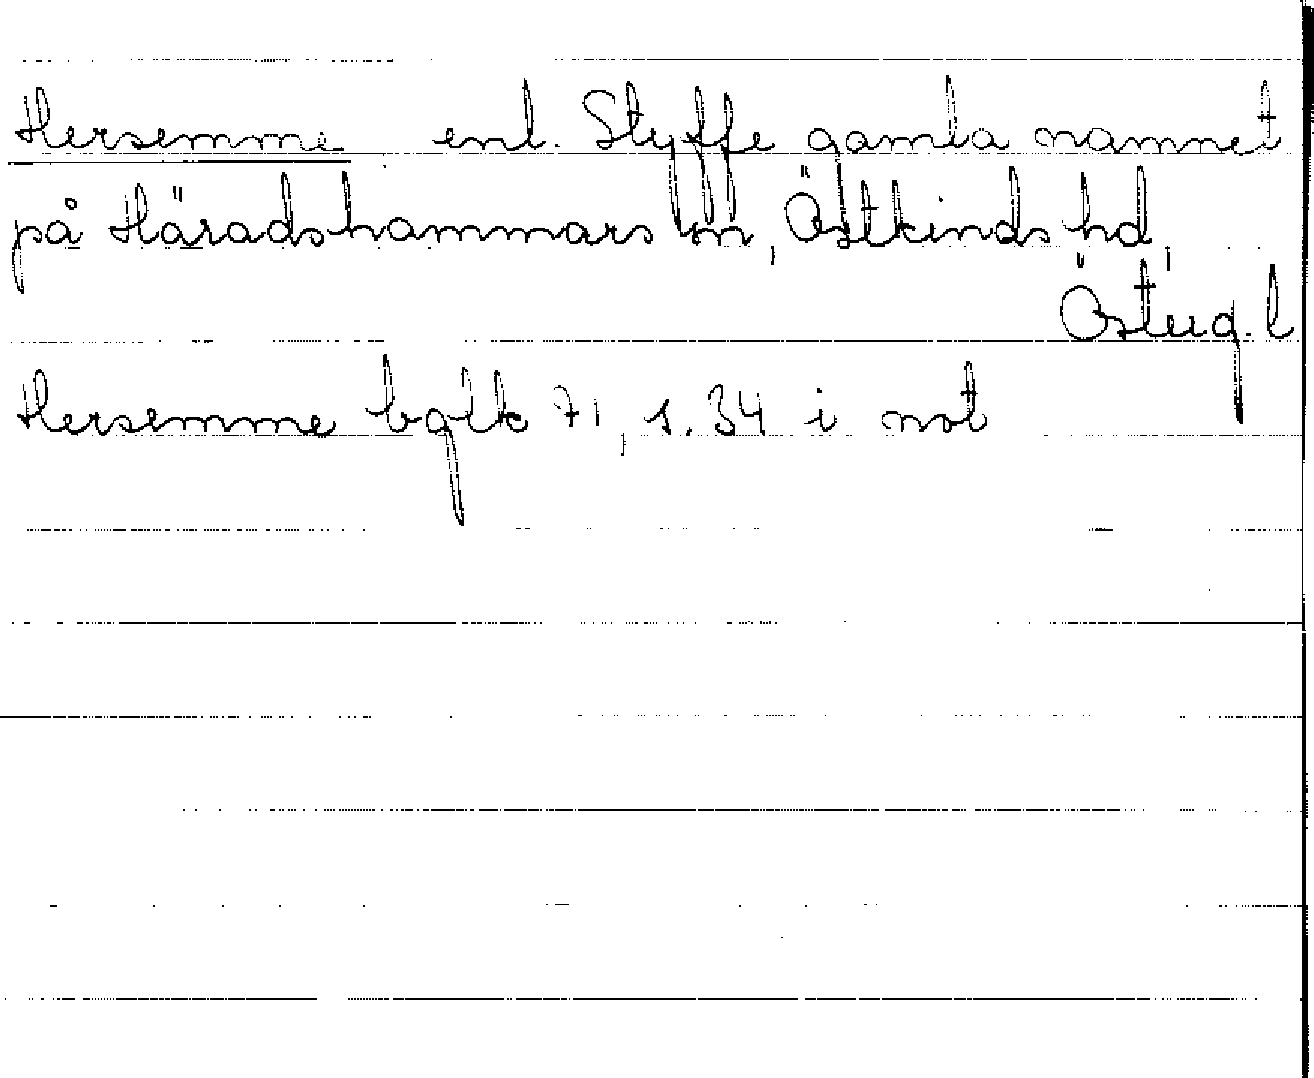 Hersemme enl. Styffe gamla namnet
på Häradshammars sn, Östkinds hd,
Österg. l
Hersemme bgtk 71, s. 34 i not